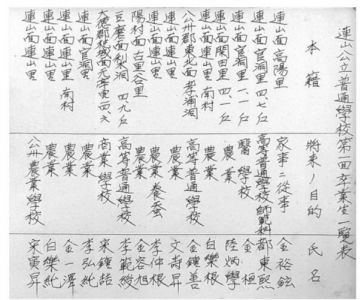 連山公立普通學校第一回卒業生一覽表
本籍 將來ノ目的 氏名
連山面高陽里 家事ニ從事 金裕鉉
連山面官洞里 四七戶 高等普通學校 都東熙
連山面官洞里 一一戶 醫學校 金桓
連山面関田里 四一戶 農業 陸炳學
連山面連山里 南村 農業 白樂根
連山面連山里 農業 金鍾善
公州郡東北面孝浦洞 高等普通學校 文尚昇
連山面連山里 農業 養蚕 李仲根
連山面連山里 農業 金容旭
陽村面古里谷里 高等普通學校 李範
豆磨面利東洞 四九戶 商業學校 宋鍾喆
大德郡杞城面元亭里 四六 農業 李弘純
連山面官洞里 農業 金一澤
連山面連山里 南村 農業 白樂純
連山面連山里 公州農業學校 宋寅昇